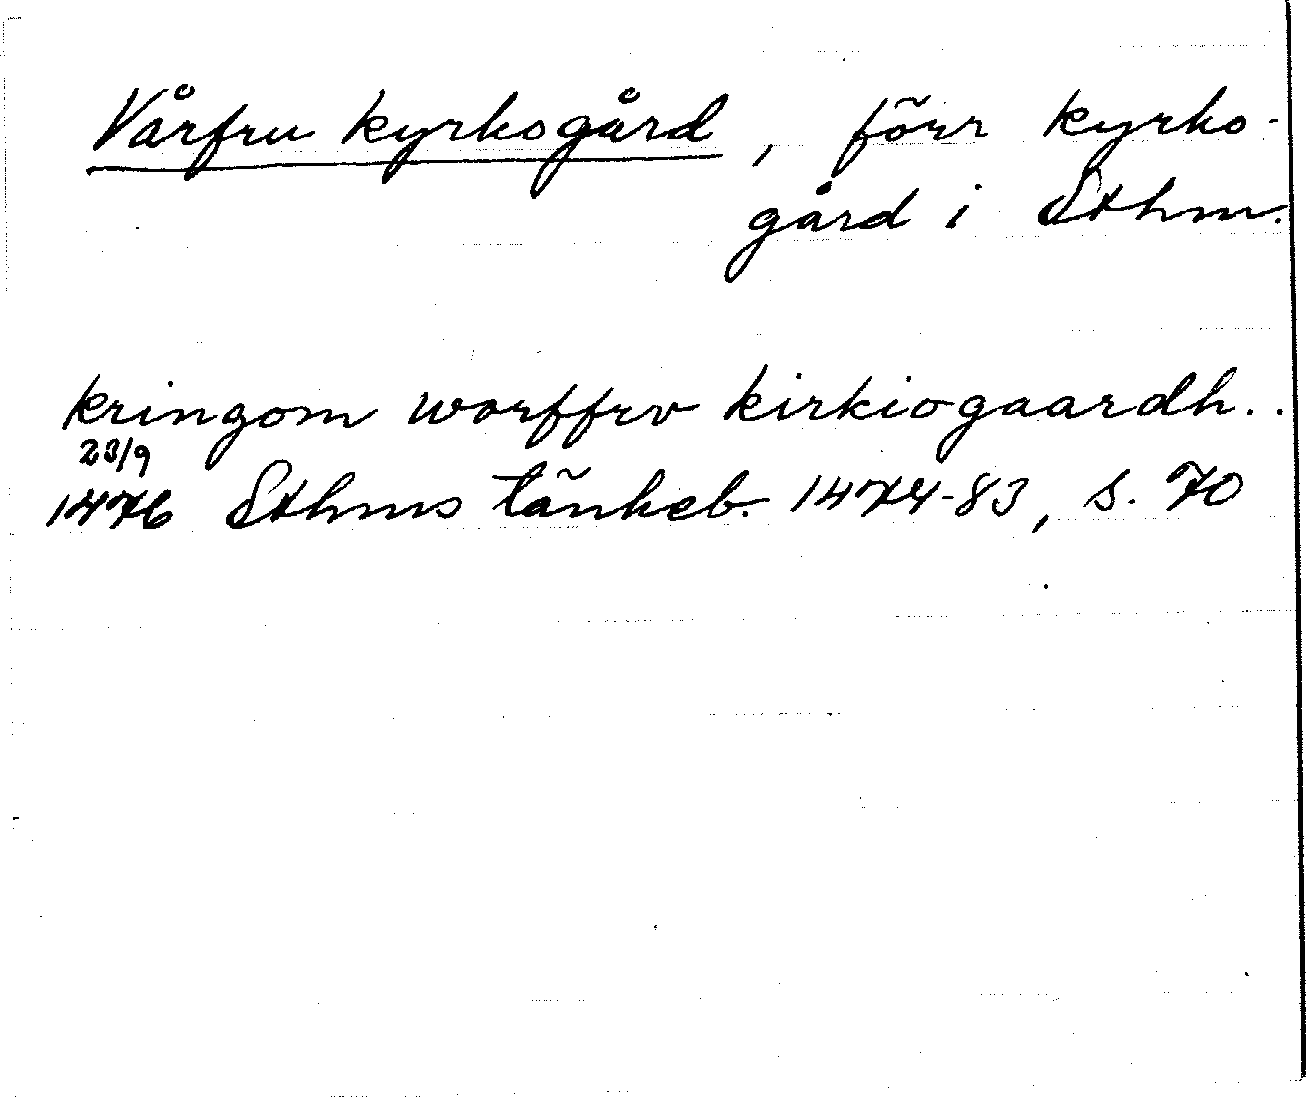 Vårfru kyrkogård, förr kyrko-
gård i Sthm.
kringom worffrv kirkiogaardh..
23/9
1476 Sthms tänkeb. 1474-83, s. 70